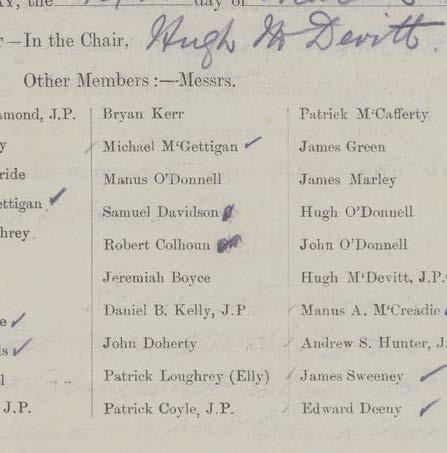 day of
In the Chair, Hugh McDevitt.
Other Members :—Messrs.
amond, J.P.
y
ride
ettigan
hrey
e
ls
l
J.P.
Bryan Kerr
Michael M‘Gettigan
Manus O’Donnell
Samuel Davidson
Robert Colhoun
Jeremiah Boyce
Daniel B. Kelly, J.P.
John Doherty
Patrick Loughrey (Elly)
Patrick Coyle, J.P.
Patrick M‘Cafferty
James Green
James Marley
Hugh O’Donnell
John O’Donnell
Hugh M‘Devitt, J.P.
Manus A. M‘Creadie
Andrew S. Hunter, J.
James Sweeney
Edward Deeny